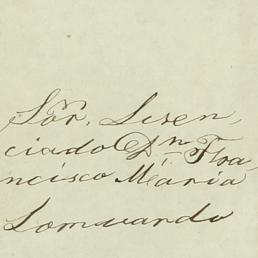 Sor. Lisen,
ciado Dn. Fra,
ncisco Maria
Lomvardo